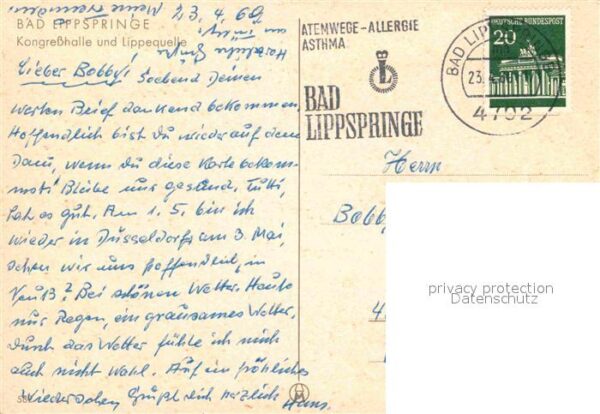 BAD LIPPSPRINGE
Kongreßhalle und Lippequelle
23. 4. 69
Herzliche Grüße
Lieber Bobby! Soebend Deinen
werten Brief dankend bekommen,
Hoffendlich bist du wieder auf dem
Dam, wenn du diese Karte bekom-
mst! Bleibe nur gesund, Tutti,
hat es gut. Am 1. 5. bin ich
wieder in Düsseldorf, am 3. Mai,
sehen wir uns hoffendlich, in
Neuß? Bei schönen Wetter. Heute
nur Regen, ein grausames Wetter.
Durch das Wetter fühle ich mich
auch nicht wohl. Auf ein fröhliches
Wiedersehen Grüßt dich herzlich Hans.
ATEMWEGE-ALLERGIE
ASTHMA
BAD
LIPPSPRINGE
BAD LIPP
23.4.
4792
DEUTSCHE BUNDESPOST
20
Herrn
Bobby
4
privacy protection
Datenschutz